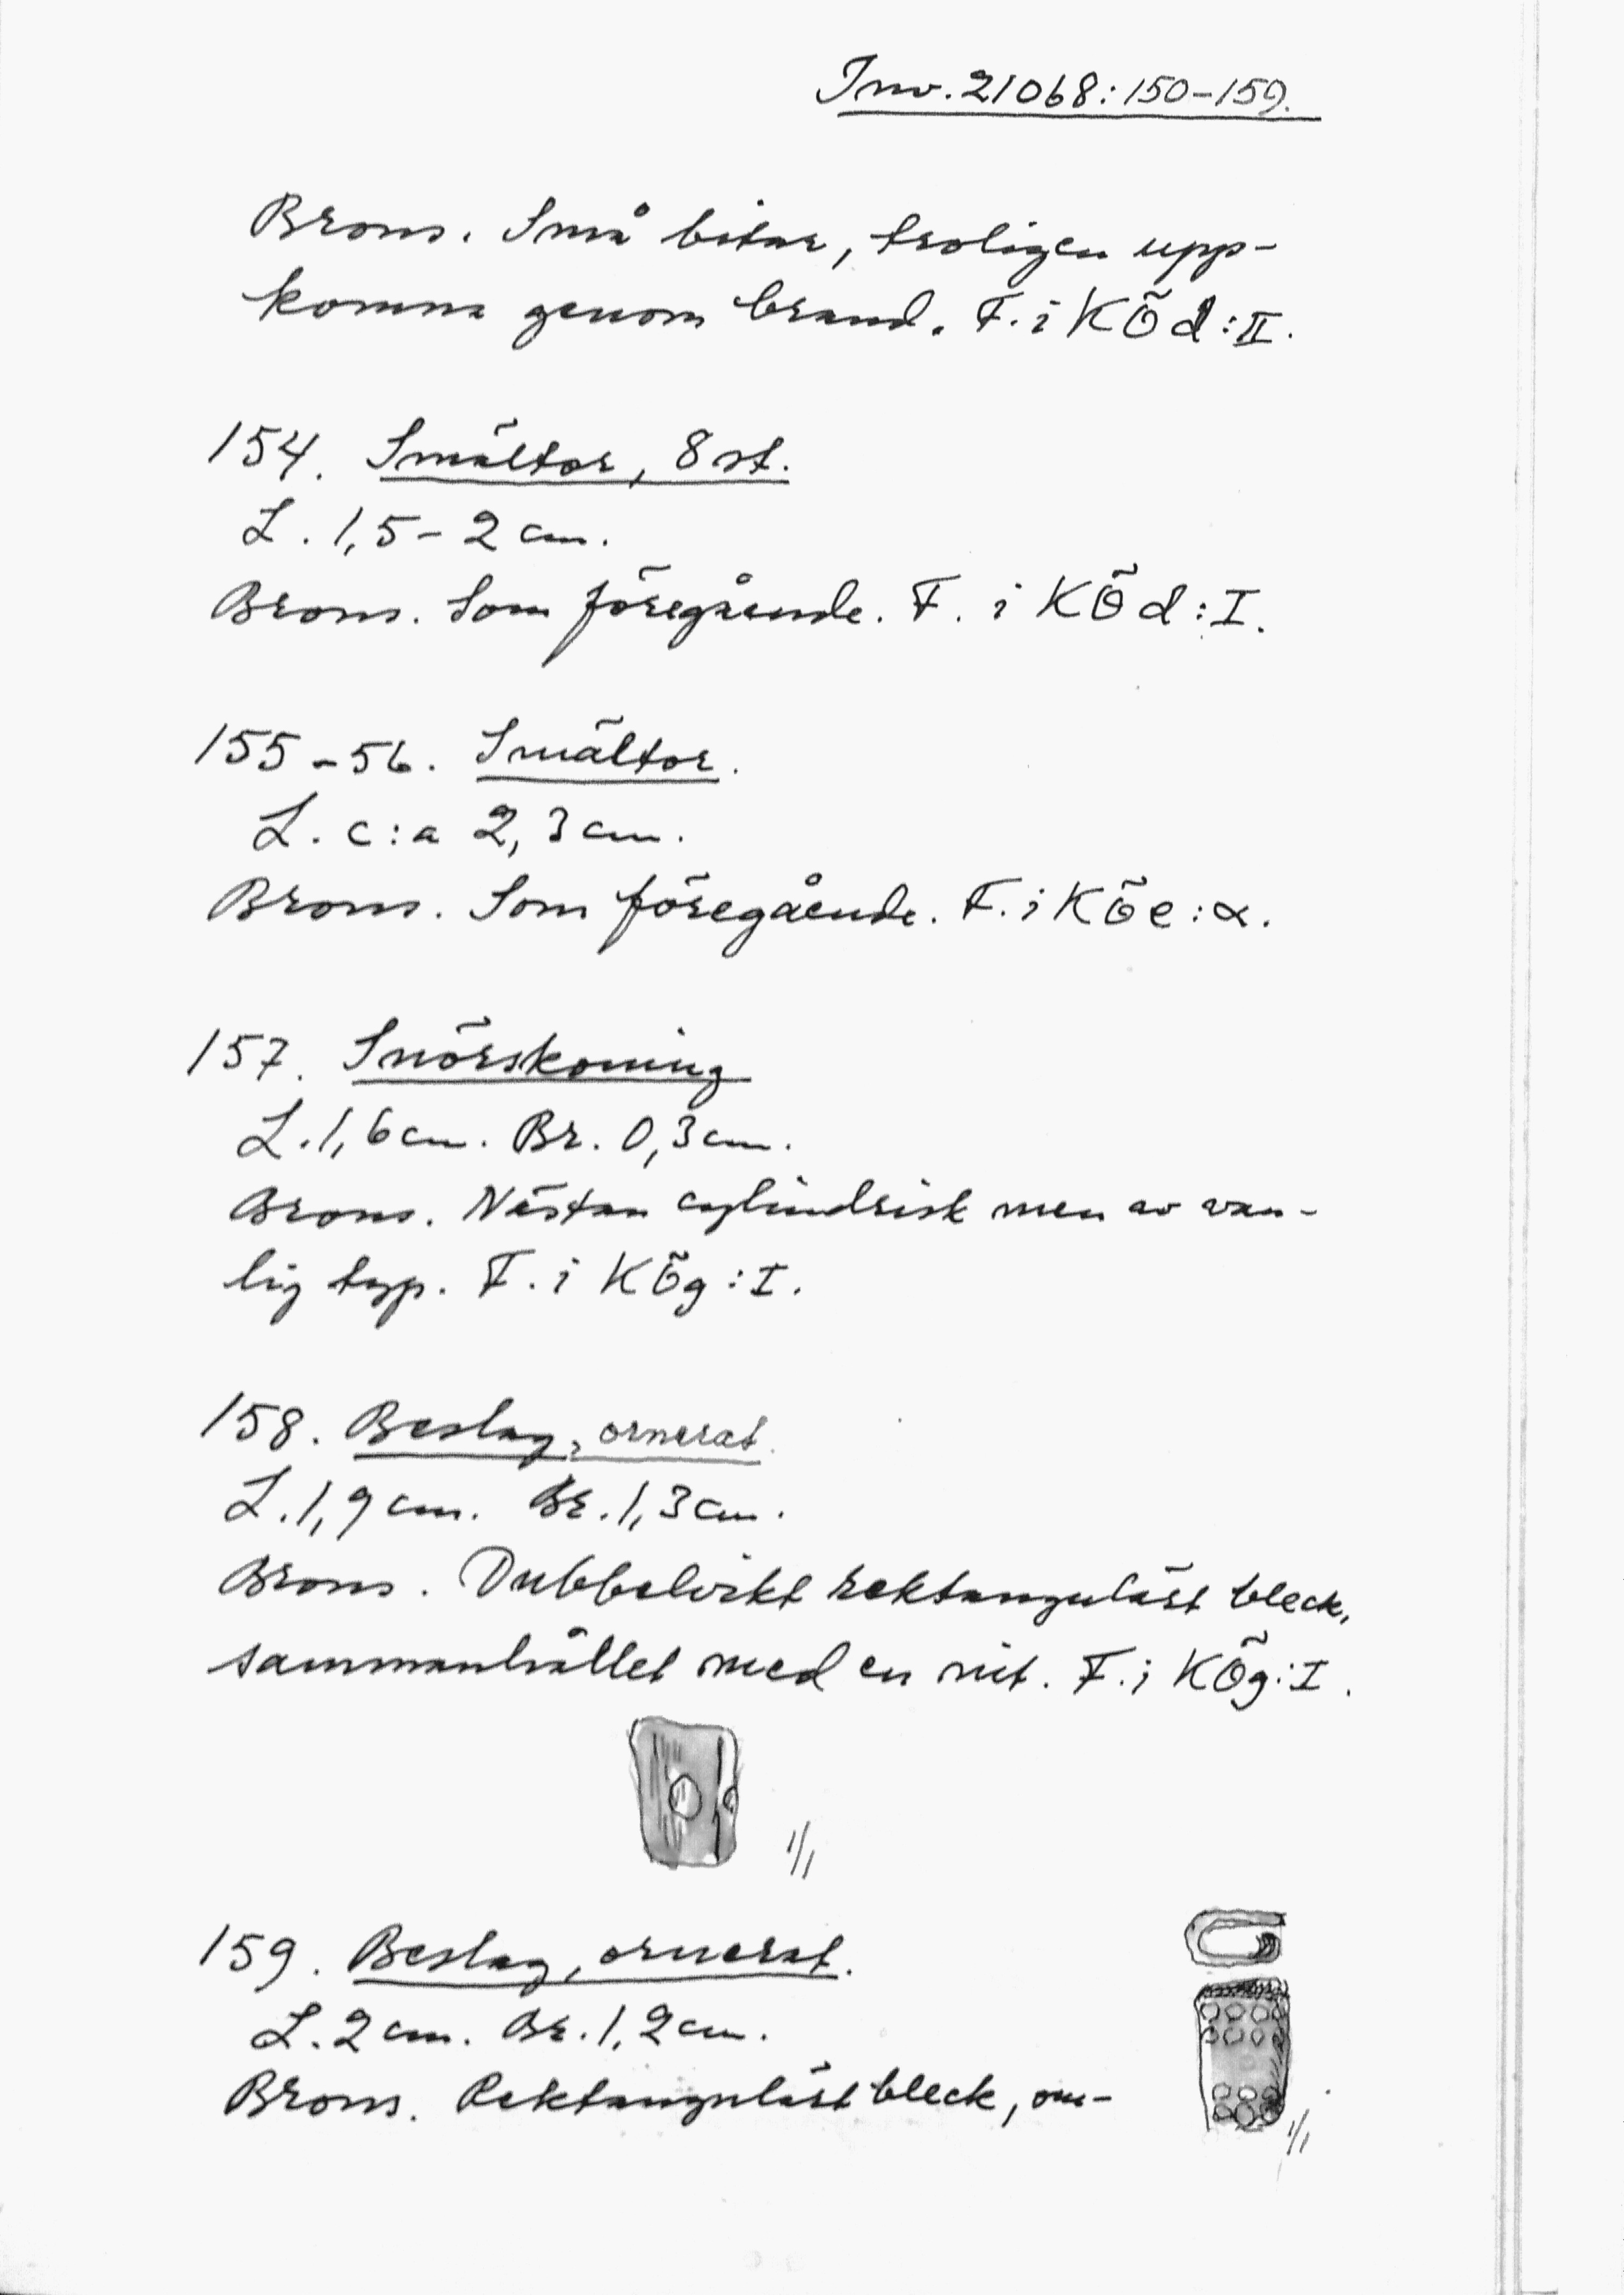 Inv. 21068:150-159.
Brons. Små bitar, troligen upp-
komna genom brand. F. i KÖd:II.
154. Smältor, 8 st.
L. 1,5-2 cm.
Brons. Som föregående. F. i KÖd:I.
155-56. Smältor.
L. c:a 2,3 cm.
Brons. Som föregående. F. i KÖe:α.
157. Snörskoning
L. 1,6 cm. Br. 0,3 cm.
Brons. Nästan cylindrisk men av van-
lig typ. F. i KÖg:I.
158. Beslag, ornerat.
L. 1,9 cm. Br. 1,3 cm.
Brons. Dubbelvikt rektangulärt bleck,
sammanhållet med en nit. F. i KÖg:I.
1/1
159. Beslag, ornerat.
L. 2 cm. Br. 1,2 cm.
Brons. Rektangulärt bleck, om-
1/1